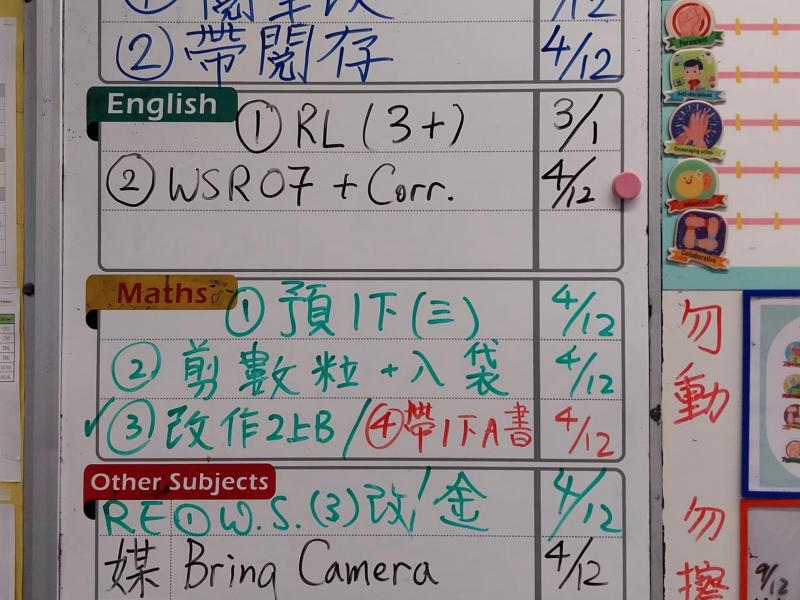 ② 帶閱存 4/12
English
① RL (3+) 3/1
② WSR07 + Corr. 4/12
Maths
① 預1下(三) 4/12
② 剪數粒 + 入袋 4/12
✓③ 改作2上B / ④帶1下A書 4/12
Other Subjects
RE ① W.S. (3) 改/金 4/12
媒 Bring Camera 4/12
Persistent
Self-disciplined
Encouraging action
Attentive
Collaborative
勿動
勿擦
9/12